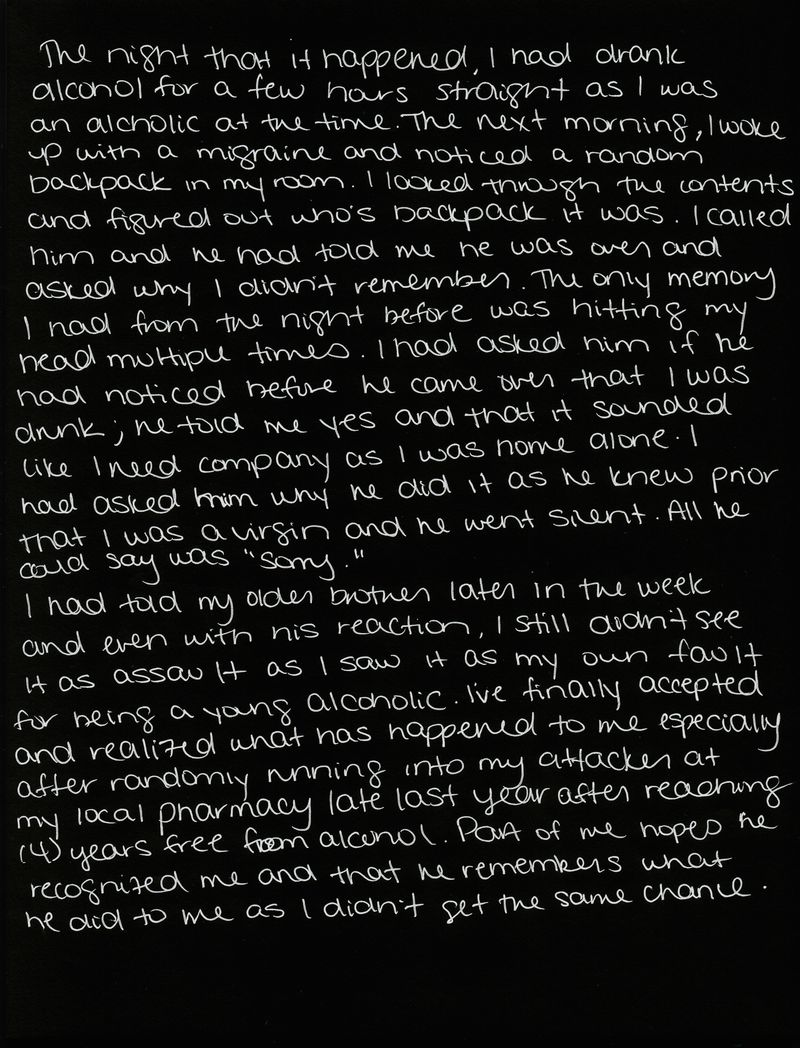 The night that it happened, I had drank
alcohol for a few hours straight as I was
an alcholic at the time. The next morning, I woke
up with a migraine and noticed a random
backpack in my room. I looked through the contents
and figured out who's backpack it was. I called
him and he had told me he was over and
asked why I didn't remember. The only memory
I had from the night before was hitting my
head multiple times. I had asked him if he
had noticed before he came over that I was
drunk; he told me yes and that it sounded
like I need company as I was home alone. I
had asked him why he did it as he knew prior
that I was a virgin and he went silent. All he
could say was "sorry."
I had told my older brother later in the week
and even with his reaction, I still didn't see
it as assault as I saw it as my own fault
for being a young alcoholic. I've finally accepted
and realized what has happened to me especially
after randomly running into my attacker at
my local pharmacy late last year after reaching
(4) years free from alcohol. Part of me hopes he
recognized me and that he remembers what
he did to me as I didn't get the same chance.